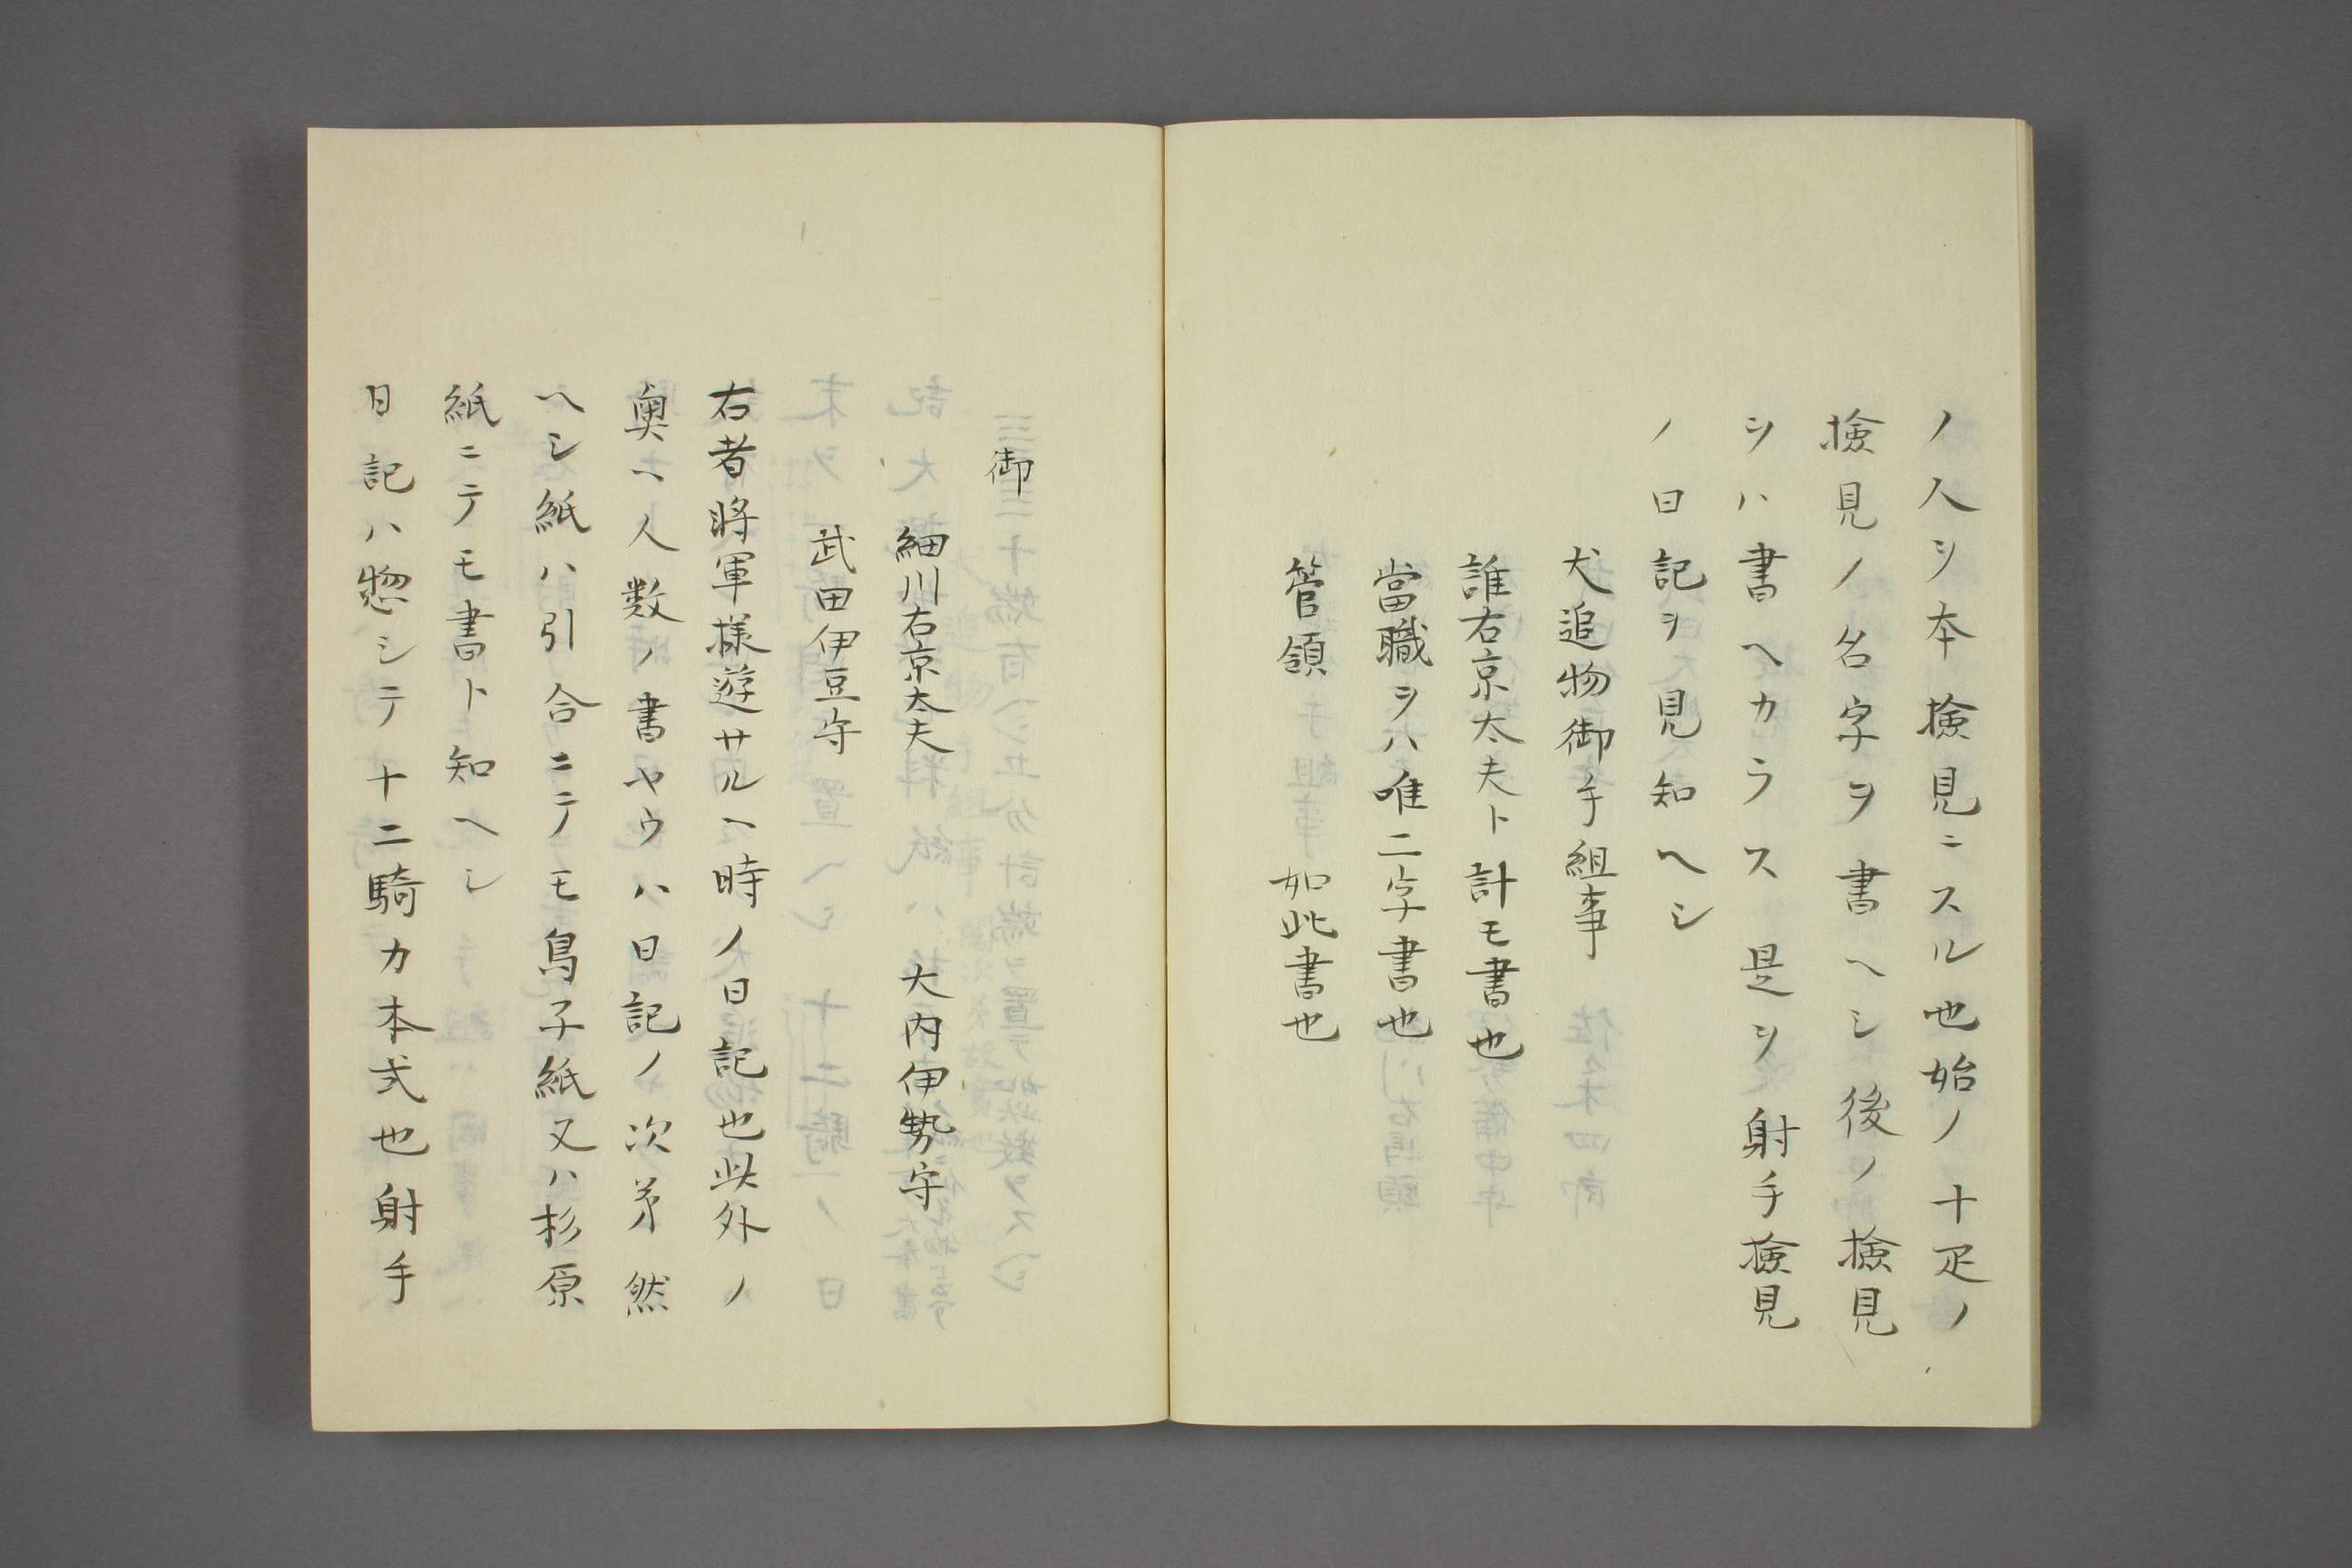 ノ人ヲ本検見ニスル也始ノ十疋ノ
検見ノ名字ヲ書ヘシ後ノ検見
ヲハ書ヘカラス是ヲ射手検見
ノ日記ヲ見知ヘシ
犬追物御手組事
誰右京太夫ト計モ書也
當職ヲハ唯二字書也
管領　如此書也
御
細川右京太夫　大内伊勢守
武田伊豆守
右者将軍様遊サルヘ時ノ日記也此外ノ
奥ヘ人数ノ書ヤウハ日記ノ次第然
ヘシ紙ハ引合ニテモ鳥子紙又ハ杉原
紙ニテモ書ト知ヘシ
日記ハ惣シテ十二騎カ本式也射手